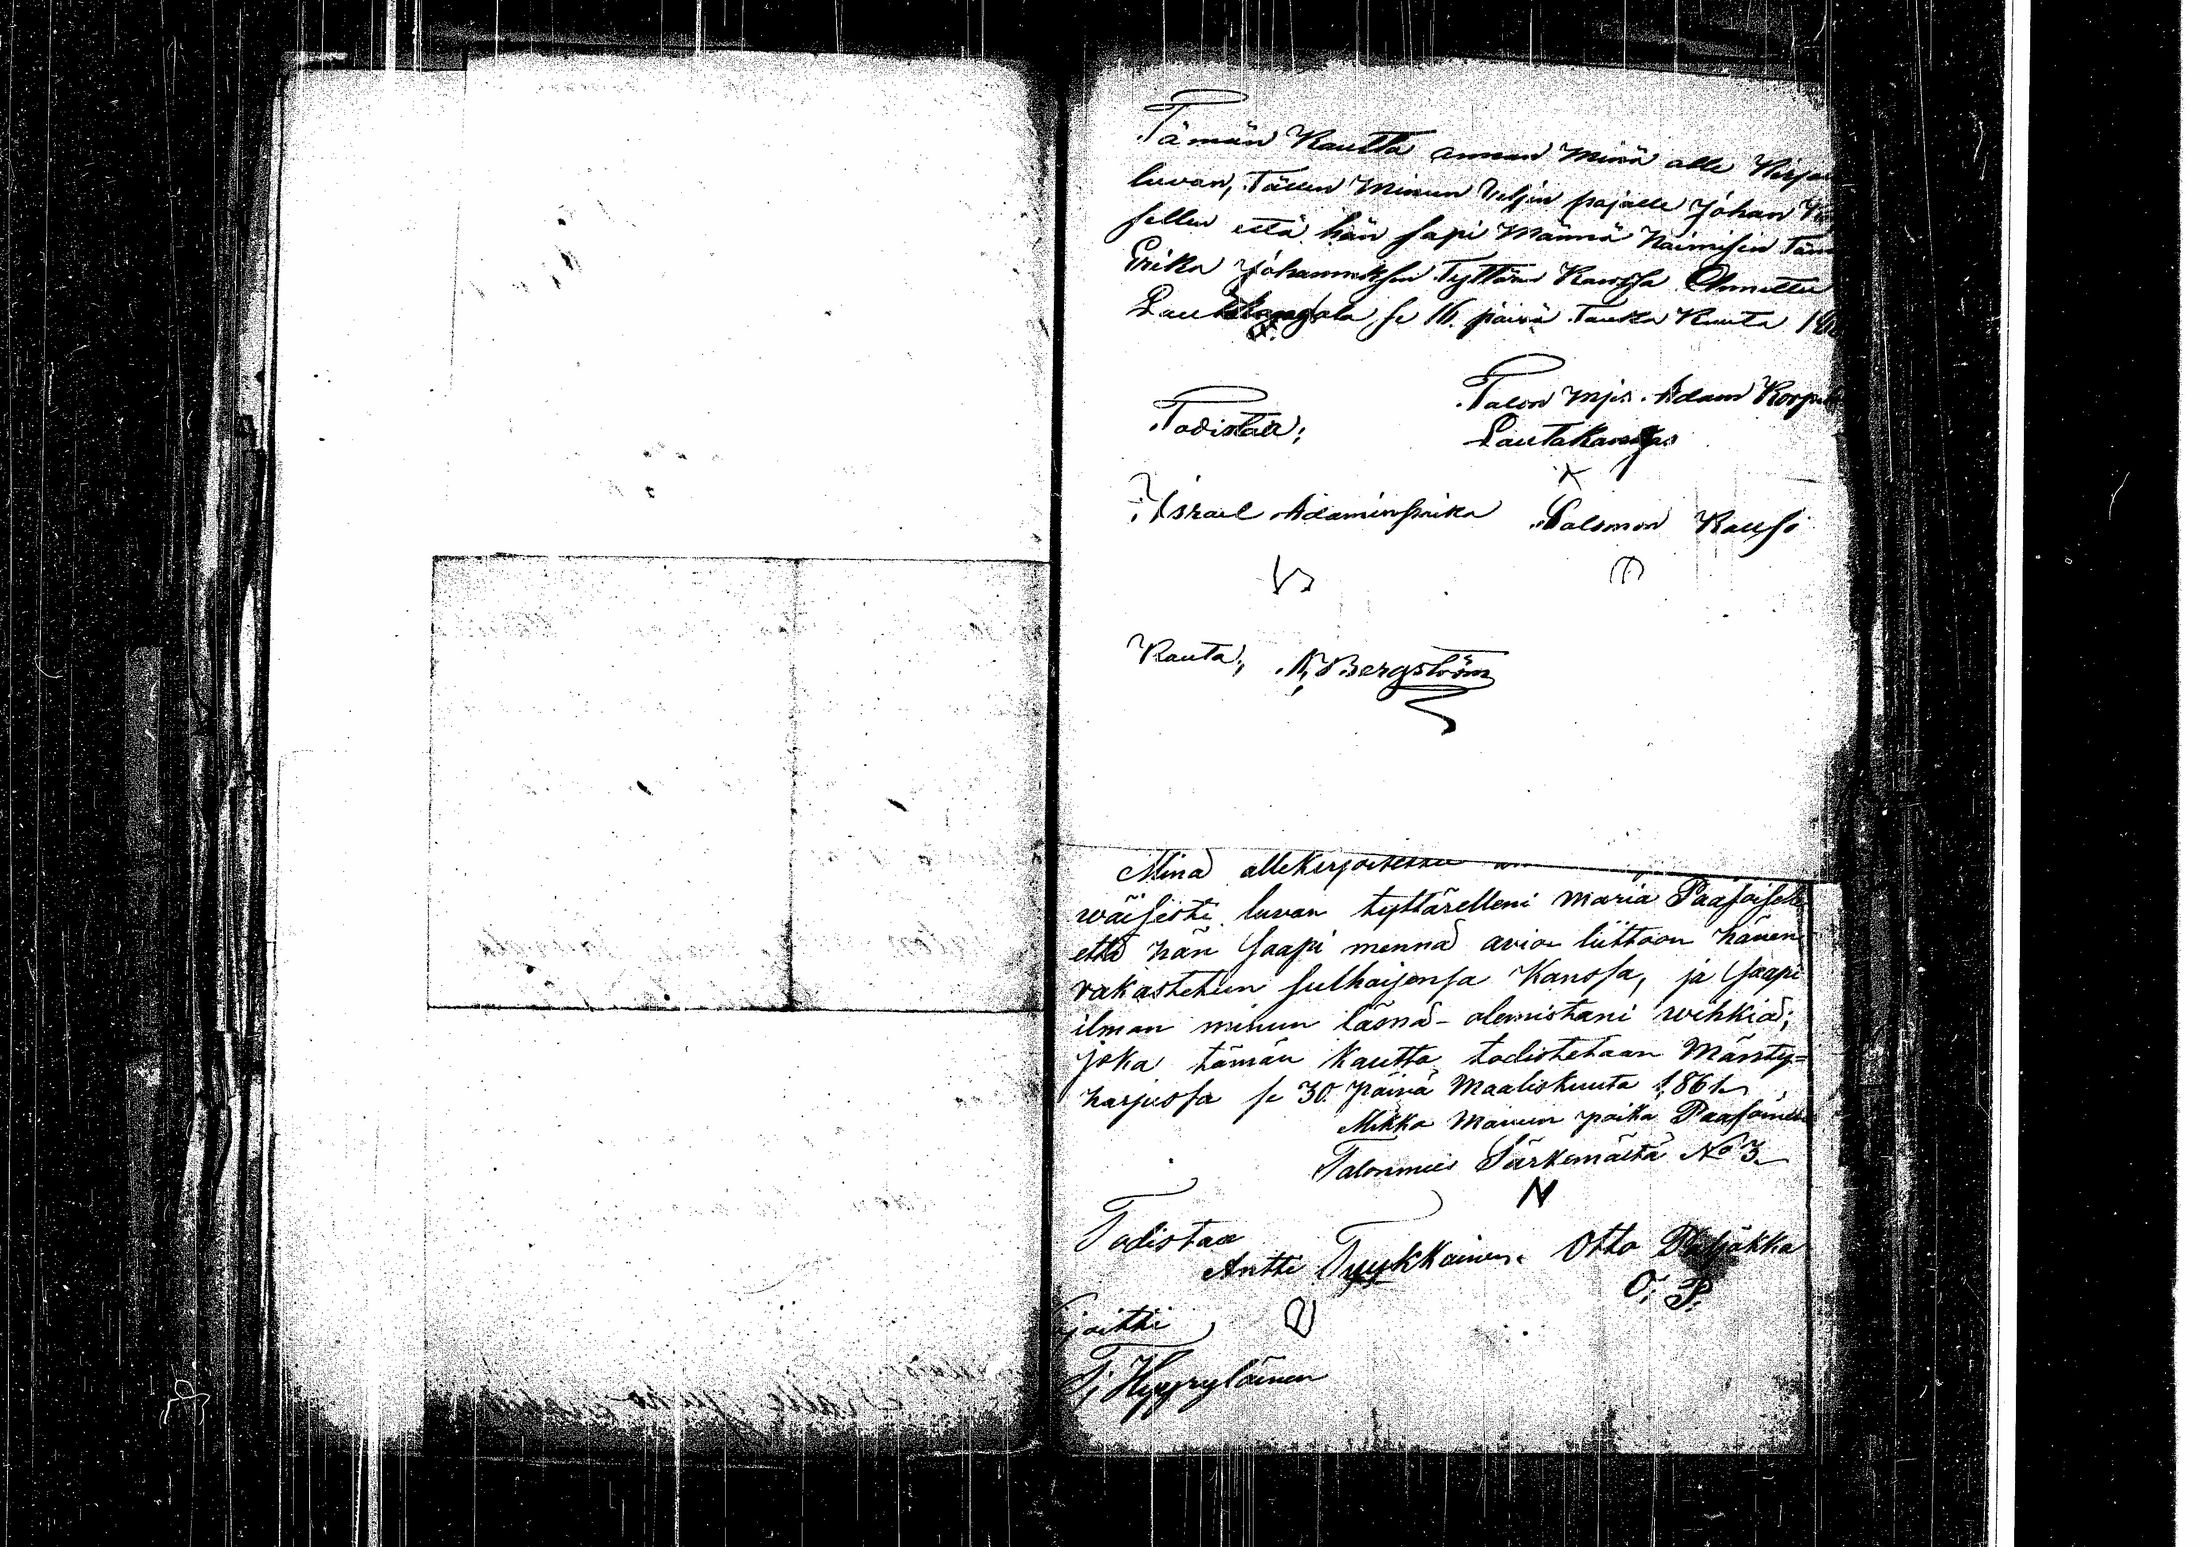 Tämän Kautta annan Minä alle Kirjoi
luvan, Tällen Minun Veljen pojalle Johan
sellen että hän sapi männä Naimisin Täm
Erika Johanneksen Tyttären Kanssa Annettu
Lautakangala, se 16. päivä Tauko Kuuta 18
Talon Mjs. Adam
Todistaa; Lautakangas
Israel Adaminpoika Salomon Kausi
Kauta, N, Bergström
Minä allekirjoitettu
wäisesti luvan tyttärelleni Maria Paasoisel
että hän saapi mennä avio liittoon hänen
rakastetun sulhaisensa Kanssa, ja saapi
ilman minun läsnä-olemistani wihkiä;
joka tämän Kautta todistetaan Mänty=
harjussa se 30. päivä Maaliskuuta 186
Mikko Manun poika Paasonen
Talonmies Särkemältä No 3
Todistaa
Antti Tyykkäinen. Otto
O; P;
joitti
T; Hyyryläinen